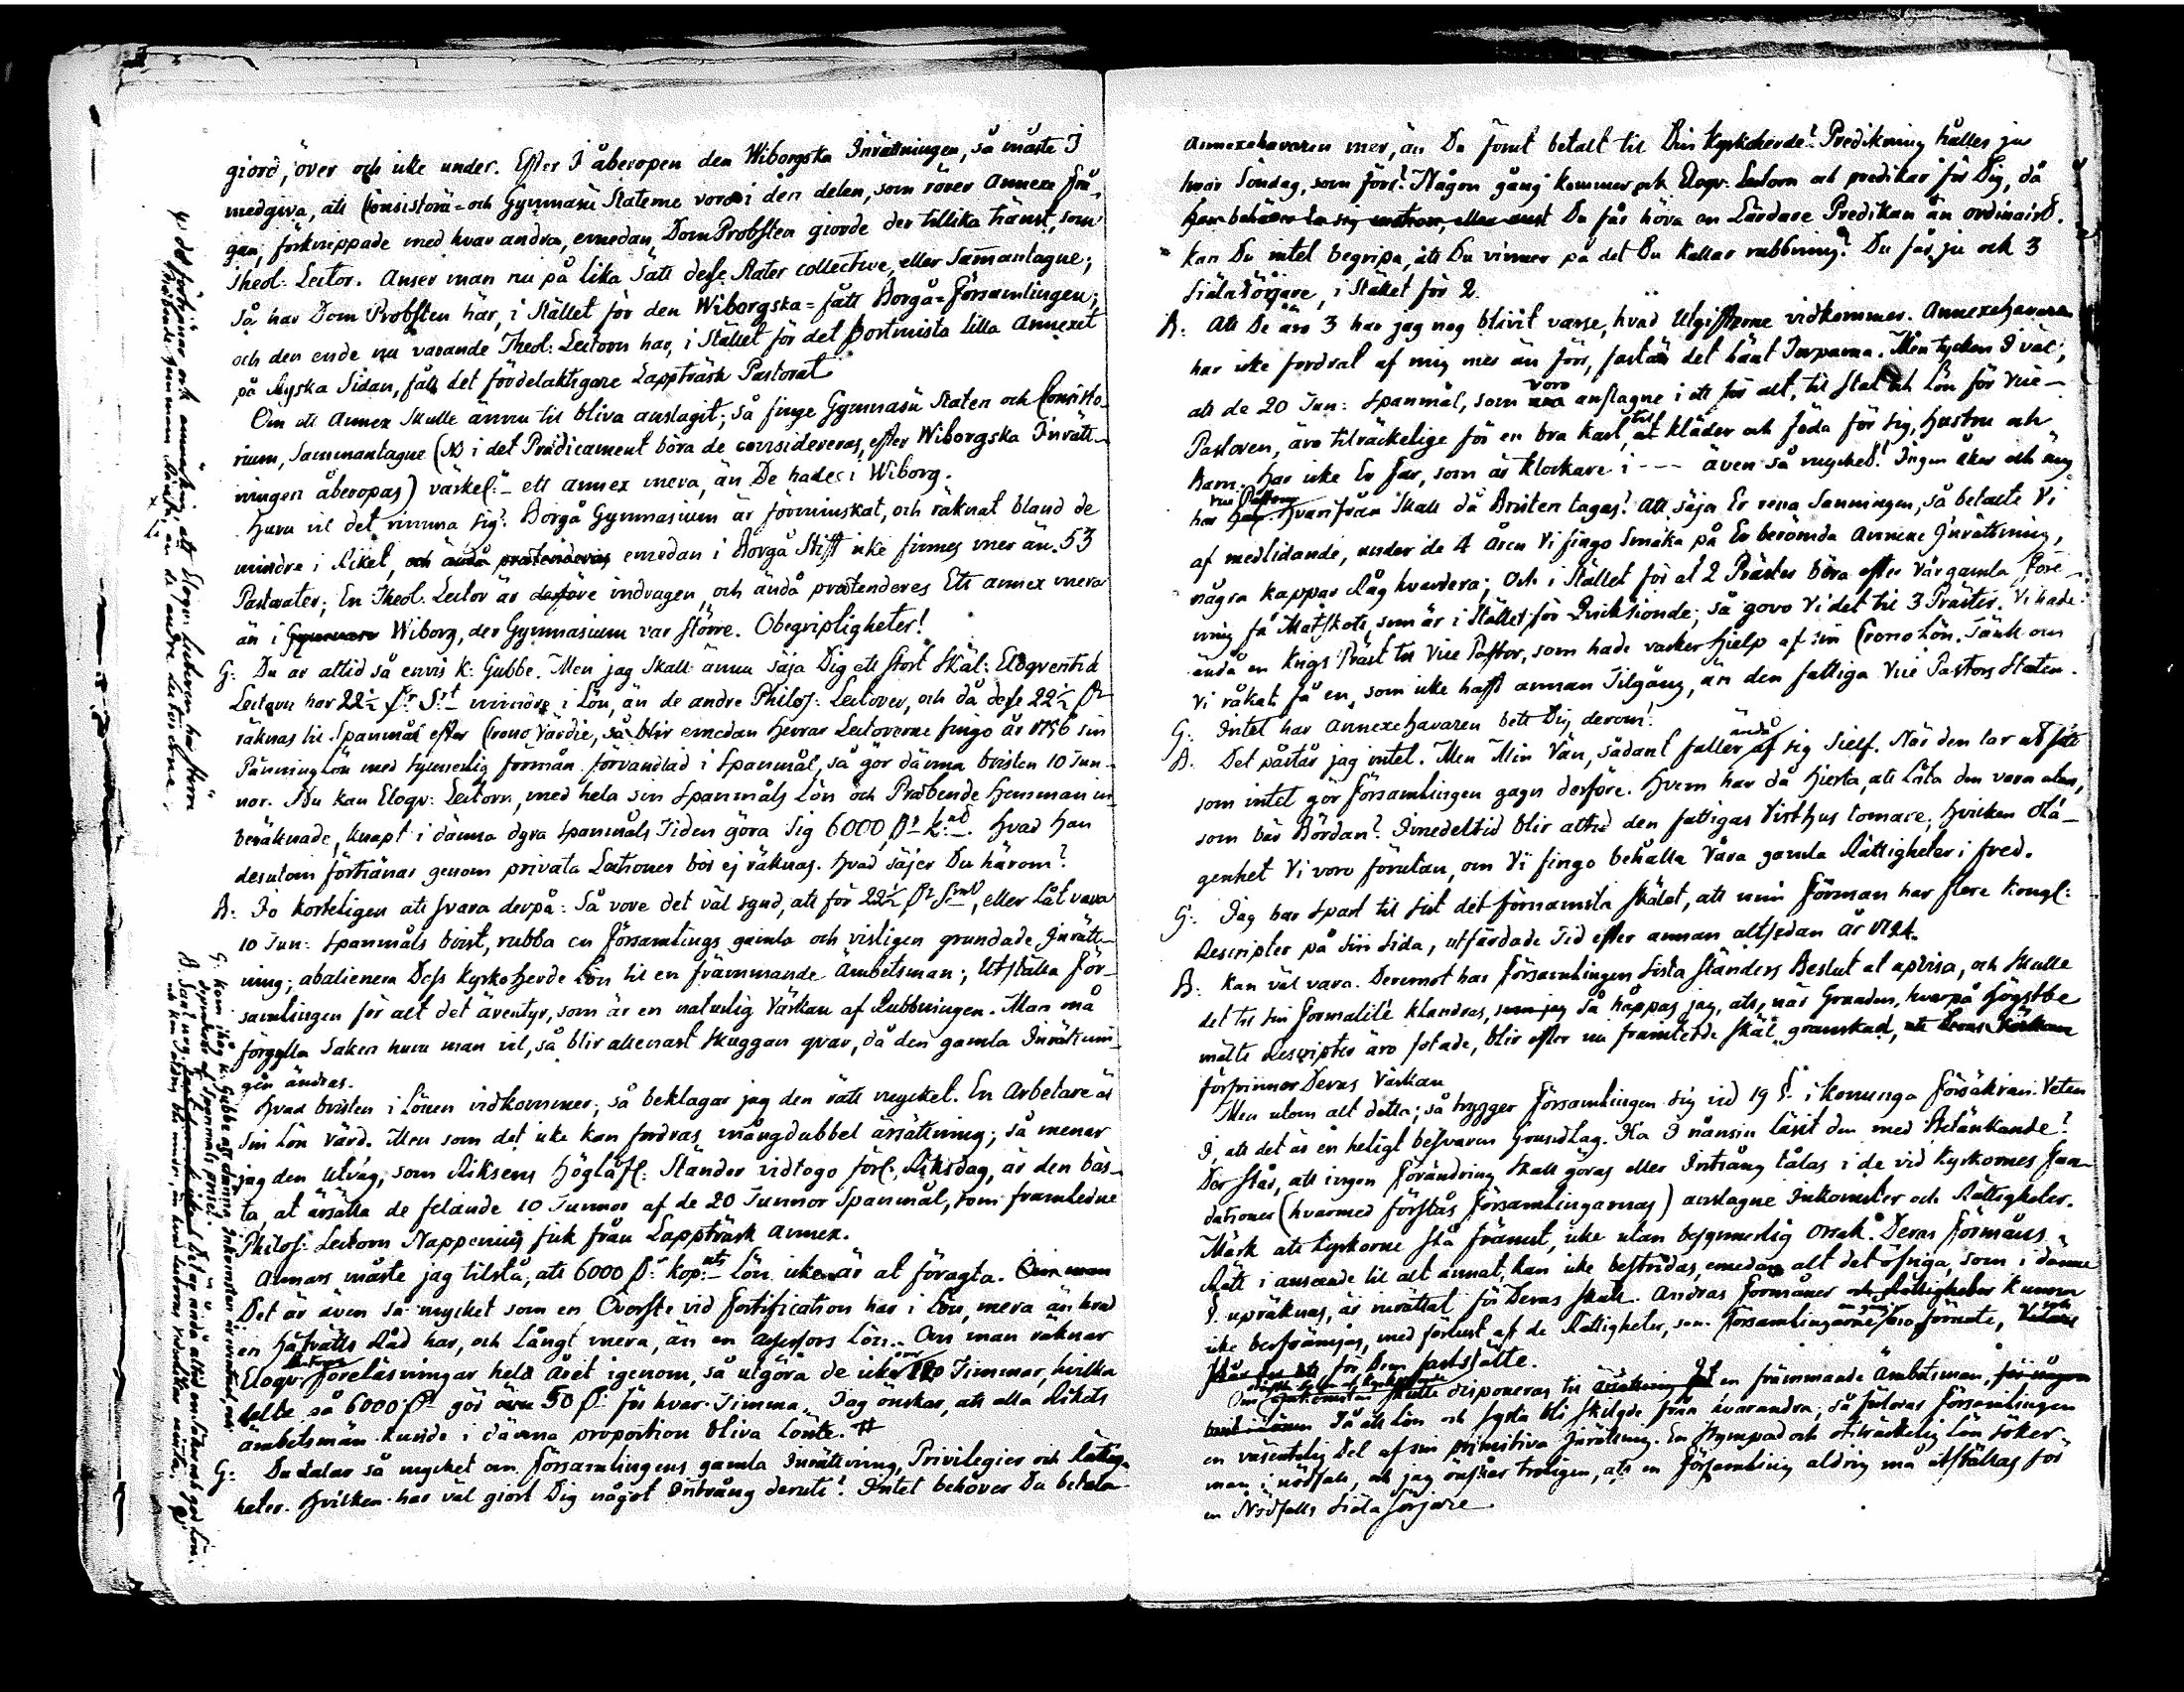 giord, över och icke under. Efter I åberopen den Wiborgska Inrättningen, så måste I
medgiva, att Consistorii- och Gymnasii Staterne voro i den delen, som rörer Annexe frå-
gan, förknippade med hvar andra, emedan, Dom Probsten giorde der tillika tiänst, som
Theol: Lector. Anser man nu på lika sätt desse Stater collective, eller samantagne;
så har Dom Probsten här, i stället för den Wiborgska- fått Borgå- Församlingen;
och den ende nu varande Theol: Lectorn har, i stället för det bortmista lilla Annexet
på Ryska Sidan, fått det fördelaktigare Lappträsk Pastorat.
Om ett Annex skulle ännu til bliva anslagit; så finge Gymnasii Staten och Consisto-
rium, sammantagne (NB i det Prædicament böra de considereras, efter Wiborgska Inrätt-
ningen åberopas) värkel:- ett annex mera, än De hade i Wiborg.
Huru vil det rimma sig? Borgå Gymnasium är förminskat, och räknat bland de
mindre i Riket, och ändå prætenderas emedan i Borgå Stift icke finnes mer än 53
Pastorater; En Theol. Lector är derföre indragen, och ändå prætenderes Ett annex mera
än i Gymnasii Wiborg, der Gymnasium var större. Obegripligheter!
G: Du är altid så envis K: Gubbe. Men jag skall ännu säja Dig ett stort skäl: Eloqventiæ
Lectorn har 22½ Dr Smt mindre i Lön, än de andre Philos: Lectorer, och då desse 22½ Dr
räknas til Spanmål efter Crono värdie, så blir emedan Herrar Lectorerne fingo år 1756 sin
Pänning Lön med synnerlig förmån förvandlad i Spanmål, så gör dänna bristen 10 Tun-
nor. Nu kan Eloqv: Lectorn, med hela sin Spanmåls Lön och Præbende Hemman in-
beräknade, knapt i dänna dyra Spanmåls Tiden göra sig 6000 Dr K:mt. Hvad Han
desutom förtiänar genom privata Lectioner bör ej räknas. Hvad säjer Du härom?
B: Jo korteligen att svara derpå: Så vore det väl synd, att för 22½ Dr Smt, eller Låt vara
10 Tun: Spanmåls brist, rubba en Församlings gamla och visligen grundade Inrätt-
ning; abalienera Dess Kyrkoherde Lön til en främmande Ämbetsman; Utställa För-
samlingen för alt det äventyr, som är en naturlig värkan af Rubbningen. Man må
förgylla saken huru man vil, så blir allenast skuggan qvar, då den gamla Inrättnin-
gen ändras.
Hvad bristen i Lönen vidkommer; så beklagar jag den rätt mycket. En Arbetare är
sin Lön värd. Men som det icke kan fordras mångdubbel ärsättning; så menar
jag den utväg, som Riksens Höglofl: Ständer vidtogo förl: Riksdag, är den bäs-
ta, at ärsätta de felande 10 Tunnor af de 20 Tunnor Spanmål, som framledne
Philos: Lectorn Nappening fick från Lappträsk Annex.
Annars måste jag tilstå, att 6000 Dr kop:mts Lön icke är at föragta. Om man
Det är även så mycket som en Öfverste vid Fortification har i Lön, mera än hvad
en Håfrätts Råd har, och Långt mera, än en Assessors Lön. Om man räknar
Eloqv: Lectorns föreläsningar hela året igenom, så utgöra de icke över 120 Timmar, hvilka
delte så 6000 Dr gör 50 D: för hvar Timma. Jag önskar, att alla Rikets
ämbetsmän kunde i dänna proportion bliva Lönte. #
G: Du talar så mycket om Församlingens gamla Inrättning, Privilegier och Rättig-
heter. Hvilken har väl giort Dig något intrång deruti? Intet behöver Du betala
G: kom ihåg K: Gubbe att dänna Inkomsten är
dependerade af Spanmåls priset.
Annexehavaren mer, än Du förut betalt til Din Kyrkoherde? Predikning hålles ju
hvar Söndag, som förr? Någon gång kommer ock Eloqv: Lectorn och predikar för Dig, då
Du får höra en Lärdare Predikan än ordinairt.
Kan Du intet begripa, att Du vinner på det Du kallar rubbning? Du får ju ock 3
Siälasörjare, i stället för 2.
B: Att De äro 3 har jag nog blivit varse, hvad Utgifterne vidkommer. Annexehavaren
har icke fordrat af mig mer än förr, fastän det hänt Inpama. Men tycken I väl;
att de 20 Tun: Spanmål, som voro anslagne i ett för alt, til stat och Lön för vice-
Pastoren, äro tilräckelige för en bra karl, til kläder och föda för sig, Hustru och
Barn. Har icke Er Far, som är Klockare i --- även så mycket? Ingen åker och äng
har vice Pastorn. Hvarifrån skall då Bristen tagas? Att säja Er rena Sanningen, så betalte Vi
af medlidande, under de 4 åren Vi fingo smaka på Er berömda Annexe Inrättning,
några kappar Råg hvardera; Och i stället för at 2 Präster böra efter vår gamla före-
ning få Matskott, som är i stället för Qvicktionde; så gåvo Vi det til 3 Präster. Vi hade
ändå en Krigs Präst til Vice Pastor, som hade vacker hjelp af sin Crono Lön. Tänk om
Vi råkat få en, som icke haft annan Tilgång, än den fattiga Vice Pastors Staten.
G: Intet har Annexehavaren bett Dig derom?
B. Det påstår jag intet. Men Min Vän, sådant faller ändå af sig sielf. När den tar
som intet gör Församlingen gagn derföre. Hvem har då hjerta, att låta den vara utan,
som bär Bördan? Imedlertid blir altid den fattigas Visthus tomare, Hvilken olä-
genhet Vi voro förutan, om Vi fingo behålla Våra gamla Rättigheter i fred.
G: Jag har spart til sist det förnämsta skälet, att min Förman har flere Kongl:
Rescripter på sin sida, utfärdade Tid efter annan altsedan år 1724.
B: Kan väl vara. Deremot har Församlingen sista Ständers Beslut at upvisa, och skulle
det til sin formalité klandras, så håppas jag, att, när Grunden, hvarpå Högstbe-
mälte Rescripter äro fotade, blir efter nu framtedde skäl granskad,
försvinner Deras Värkan
Men utom alt detta; så trygger Församlingen sig vid 19 §. i Konunga Försäkran. Veten
I, att det är en heligt besvuren Grundlag. Ha I nånsin läsit den med Betänkande?
Der står, att ingen Förändring skall göras eller Intrång tålas i de vid Kyrkornes Fun-
dationer (hvarmed förstås Församlingarnas) anslagne Inkomster och Rättigheter.
Märk att Kyrkorne stå främst, icke utan besynnerlig orsak. Deras Förmåns
Rätt i anseende til alt annat, kan icke bestridas, emedan alt det öfriga, som i dänna
§. upräknas, är inrättat för Deras skull. Andras Förmåner och Rättigheter kunna
icke befrämjas, med förlust af de Rättigheter, som Församlingarne äro förunte,
för Dem fastställte.
disponeras til en främmande Ämbetsman,
Så att Lön och syssla bli skilgde från hvarandra; så förlorar Församlingen
en väsentelig Del af sin primitiva Inrättning. En stympad och otilräckelig Lön söker
man i nödfall, och jag önskar troligen, att en Församling aldrig må utställas för
en Nödfalls Siälasörjare